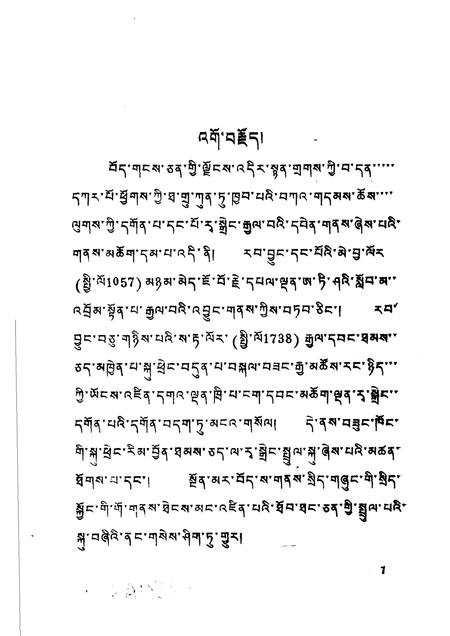 འགོ་བརྗོད།
བོད་གངས་ཅན་གྱི་ལྗོངས་འདིར་སྙན་གྲགས་ཀྱི་བ་དན་····
དཀར་པོ་ཕྱོགས་ཀྱི་ཐ་གྲུ་ཀུན་ཏུ་ཁྱབ་པའི་བཀའ་གདམས་ཆོས་···
ལུགས་ཀྱི་དགོན་པ་དང་པོ་རྭ་སྒྲེང་རྒྱལ་བའི་དབེན་གནས་ཞེས་པའི་
གནས་མཆོག་དམ་པ་འདི་ནི། རབ་བྱུང་དང་པོའི་མེ་བྱ་ལོར
(སྤྱི་ལོ1057) མཉམ་མེད་ཇོ་བོ་རྗེ་དཔལ་ལྡན་ཨ་ཏི་ཤའི་སློབ་མ་··
འབྲོམ་སྟོན་པ་རྒྱལ་བའི་འབྱུང་གནས་ཀྱིས་བཏབ་ཅིང་། རབ་
བྱུང་བཅུ་གཉིས་པའི་ས་རྟ་ལོར་ (སྤྱི་ལོ1738) རྒྱལ་དབང་ཐམས་··
ཅད་མཁྱེན་པ་སྐུ་ཕྲེང་བདུན་པ་བསྐལ་བཟང་རྒྱ་མཚོས་རང་ཉིད་···
ཀྱི་ཡོངས་འཛིན་དགའ་ལྡན་ཁྲི་པ་ངག་དབང་མཆོག་ལྡན་རྭ་སྒྲེང་··
དགོན་པའི་དགོན་བདག་ཏུ་མངའ་གསོལ། དེ་ནས་བཟུང་ཁོང་
གི་སྐུ་ཕྲེང་རིམ་བྱོན་ཐམས་ཅད་ལ་རྭ་སྒྲེང་སྤྲུལ་སྐུ་ཞེས་པའི་མཚན་
ཐོགས་པ་དང་། སྔོན་མར་བོད་ས་གནས་སྲིད་གཞུང་གི་སྲིད་
སྐྱོང་གི་གོ་གནས་ཐེངས་མང་འཛིན་པའི་ཐོབ་ཐང་ཅན་གྱི་སྤྲུལ་པའི་
སྐུ་བཞིའི་ནང་གསེས་ཤིག་ཏུ་གྱུར།
1